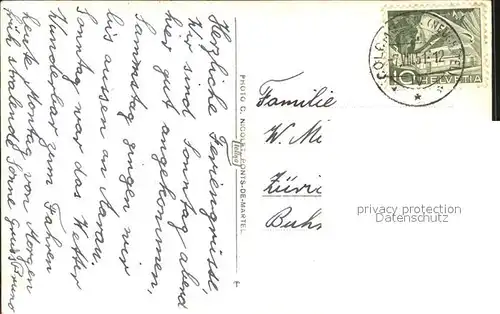 Herzliche Feriengrüsse,
Wir sind Sonntag abend
hier gut angekommen,
Samstag gingen wir
bis aussen an Aarau.
Sonntag war das Wetter
Wunderbar zum Fahren
heute Montag von Morgen
früh strahlende Sonne Gruss Bruno
PHOTO G. NICOLET, PONTS-DE-MARTEL
10 HELVETIA
Familie
W. Mi
Züri
Buhs
privacy protection
Datenschutz